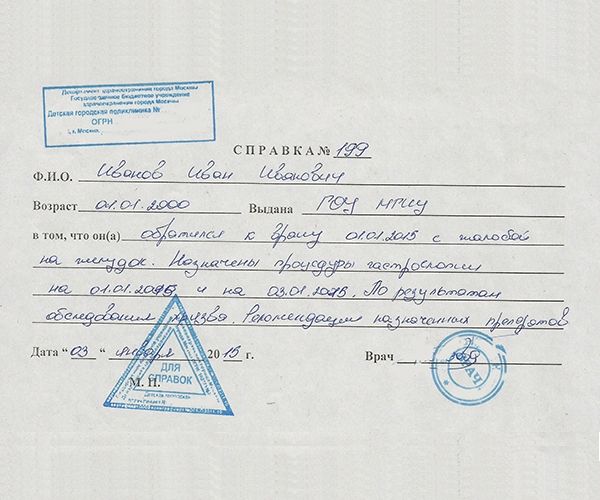 Департамент здравоохранения города Москвы
Государственное бюджетное учреждение
здравоохранения города Москвы
Детская городская поликлиника №
ОГРН
г. Москва
СПРАВКА № 199
Ф.И.О. Иванов Иван Иванович
Возраст 01.01.2000 Выдана ГОУ
в том, что он(а) обратился к врачу 01.01.2015 с жалобой
на желудок. Назначены процедуры
на 01.01.2015, и на 03.01.2015. По результатам
обследования язва. Рекомендации назначенных препаратов
Дата “ 03 “ января 2015 г. Врач
М. П.
ДЛЯ
СПРАВОК
ВРАЧ